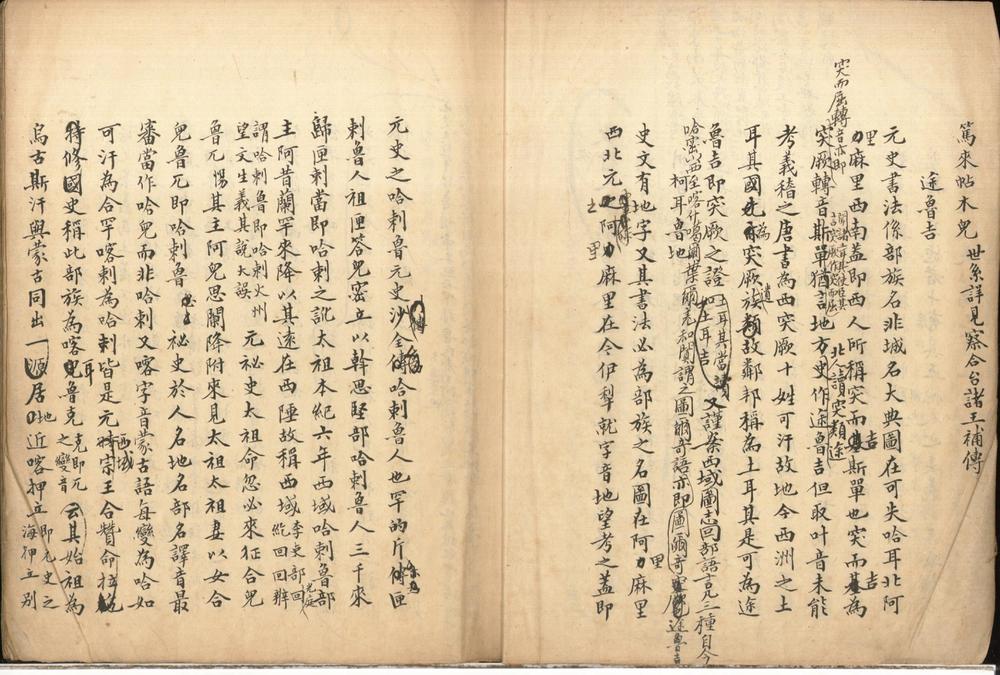 篤來帖木兒 世系詳見察合台諸王補傳
途魯吉
元史書法係部族名非城名大典圖在可失哈耳北阿
力麻里西南蓋即西人所稱突而吉斯單也突而吉為
突而屈轉音亦即
突厥轉音斯單猶言地方史作途魯吉但取叶音未能
北人讀突類途
考義稽之唐書為西突厥十姓可汗故地今西洲之土
耳其國為突厥遺族故鄰邦稱為土耳其是可為途
魯吉即突厥之證 又謹案西域圖志回部語言凡三種自今
土耳其當讀土耳吉
哈密以西至喀什噶爾葉爾羌和闐謂之圖爾奇語亦即途魯吉
柯耳魯地
史文有地字又其書法必為部族之名圖在阿力麻里
西北元之阿力麻里在今伊犁就字音地望考之蓋即
元史之哈剌魯元史沙全傳哈剌魯人也罕的斤傳匣
剌魯人祖匣答兒密立以斡思堅部哈剌魯人三千來
歸匣剌當即哈剌之訛太祖本紀六年西域哈剌魯部
主阿昔蘭罕來降以其遠在西陲故稱西域 李光庭
謂哈剌魯即哈剌火州
望文生義其說大誤 元秘史太祖命忽必來征合兒
魯兀惕其主阿兒思闌降附來見太祖太祖妻以女合
兒魯兀即哈剌魯 秘史於人名地名部名譯音最
審當作哈兒而非哈剌又喀字音蒙古語每變為哈如
可汗為合罕喀剌為哈剌皆是元時西域宗王合贊命
特修國史稱此部族為喀耳魯克 克即兀之變音 云其始祖為
烏古斯汗與蒙古同出一源居地近喀押立 即元史之海押立 別